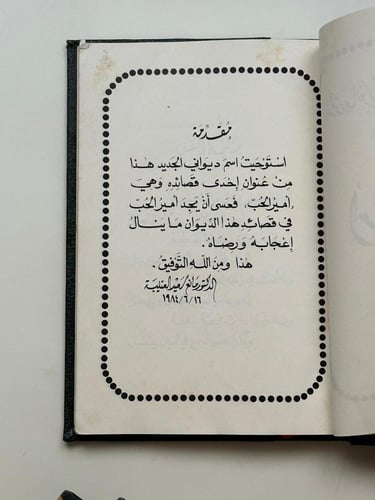 مقدمة
استوحيت اسم ديواني الجديد هذا
من عنوان إحدى قصائده وهي
"أمير الحب"، فعسى أن يجد أمير الحب
في قصائد هذا الديوان ما ينال
إعجابه ورضاه.
هذا ومن الله التوفيق.
الدكتور مانع سعيد العتيبة
١٩٨٤/٦/١٦